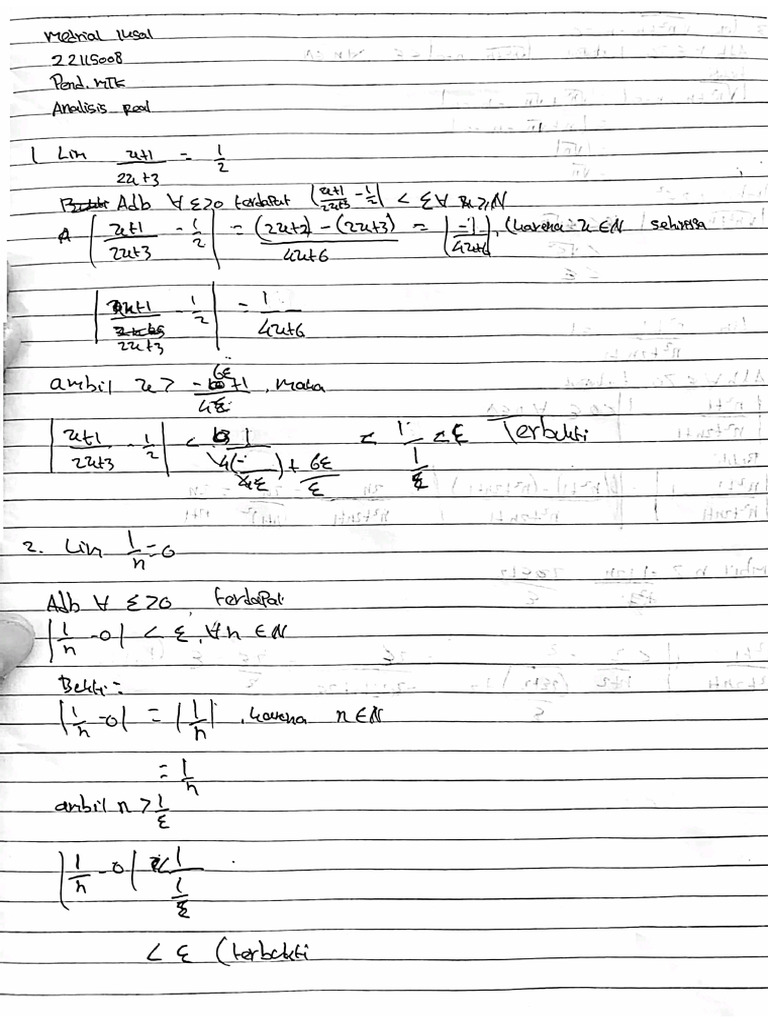 22115008
Pend. MTK
Analisis Real
1 Lim (n+1)/(2n+3) = 1/2
Adb ∀ ε>0 terdapat |(n+1)/(2n+3) - 1/2| < ε ∀ n ≥ N
|(n+1)/(2n+3) - 1/2| = (2n+2) - (2n+3)/(4n+6) = |-1/(4n+6)|, (karena n ∈ N sehingga
|(n+1)/(2n+3) - 1/2| = 1/(4n+6)
ambil n > (-6ε+1)/4ε, maka
|(n+1)/(2n+3) - 1/2| < 1/(4(-/4ε) + 6ε/ε) < 1/(1/ε) < ε Terbukti
2. Lim 1/n = 0
Adb ∀ ε>0, terdapat
|1/n - 0| < ε, ∀n ∈ N
Bukti =
|1/n - 0| = |1/n|, karena n ∈ N
= 1/n
ambil n > 1/ε
|1/n - 0| < 1/(1/ε)
< ε (terbukti